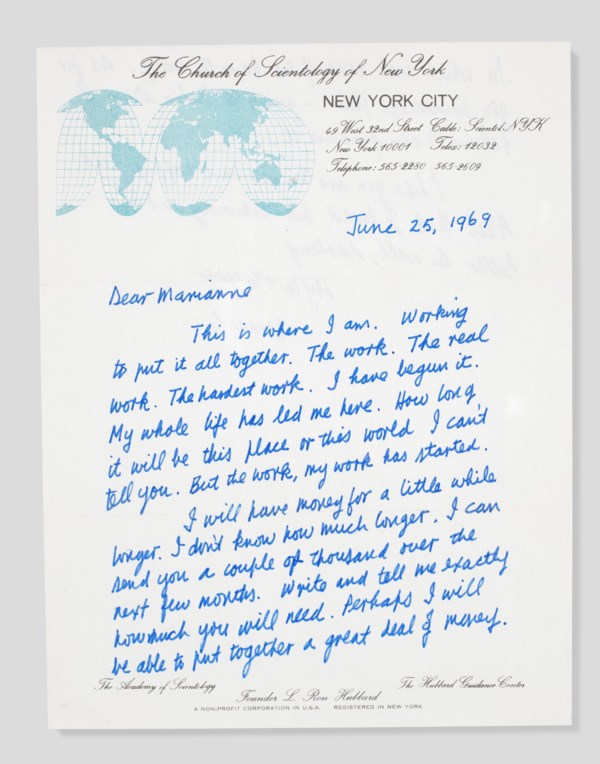 The Church of Scientology of New York
NEW YORK CITY
49 West 32nd Street Cable: Scientol NYK
New York 10001 Telex: 12032
Telephone: 565-2280 565-2509
June 25, 1969
Dear Marianne
This is where I am. Working
to put it all together. The work. The real
work. The hardest work. I have begun it.
My whole life has led me here. How long
it will be this place or this world I can't
tell you. But the work, my work has started.
I will have money for a little while
longer. I don't know how much longer. I can
send you a couple of thousand over the
next few months. Write and tell me exactly
how much you will need. Perhaps I will
be able to put together a great deal of money.
The Academy of Scientology
The Hubbard Guidance Center
Founder L. Ron Hubbard
A NON-PROFIT CORPORATION IN U.S.A. REGISTERED IN NEW YORK